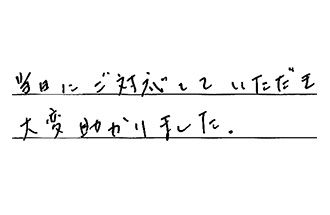 当日にご対応していただき
大変助かりました。